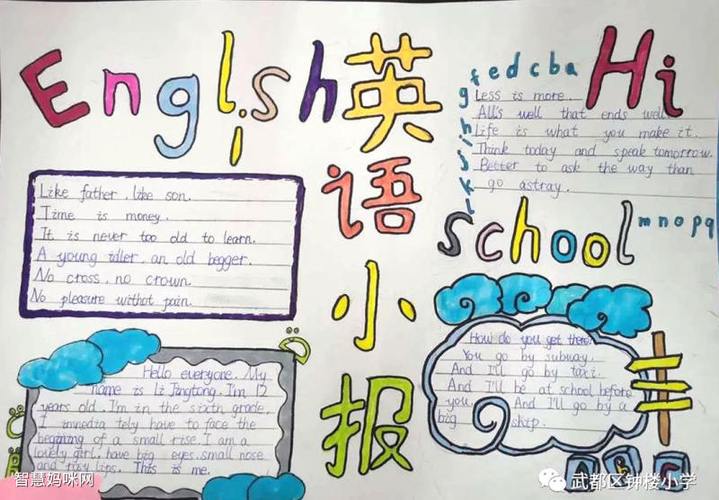 English
英语小报
Hi
f e d c b a
g h i j k l
Less is more.
All's well that ends well
Life is what you make it.
Think today and speak tomorrow.
Better to ask the way than
go astray.
school
m n o p q
Like father, like son.
Time is money.
It is never too old to learn.
A young idler, an old begger.
No cross, no crown.
No pleasure withot pain.
Hello everyone. My
name is Li Jingtong. I'm 12
years old. I'm in the sixth grade.
I innedia tely have to face the
beginning of a small rise. I am a
lovely girl, have big eyes, small nose
and rosy lips. This is me.
How do you get there?
You go by subway.
And I'll go by taxi.
And I'll be at school before
you. And I'll go by a
big ship.
A B C
智慧妈咪网
武都区钟楼小学